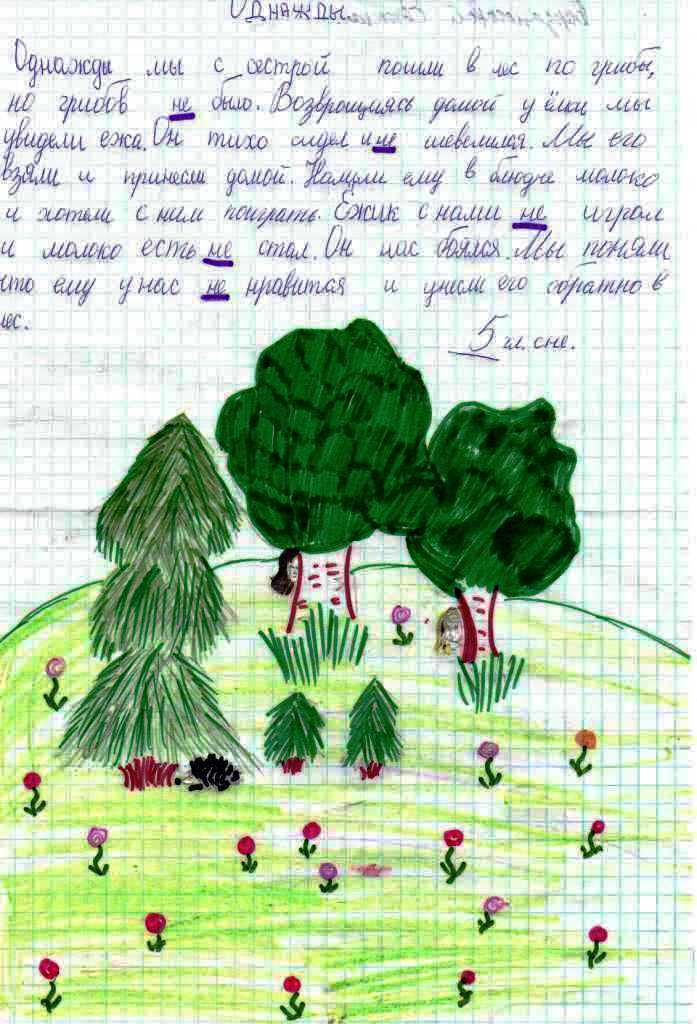 Однажды
Однажды мы с сестрой пошли в лес по грибы,
но грибов не было. Возвращаясь домой у ёлки мы
увидели ежа. Он тихо сидел и не шевелился. Мы его
взяли и принесли домой. Налили ему в блюдце молоко
и хотели с ним поиграть. Ёжик с нами не играл
и молоко есть не стал. Он нас боялся. Мы поняли
что ему у нас не нравится и унесли его обратно в
лес.
5 гл. с не.